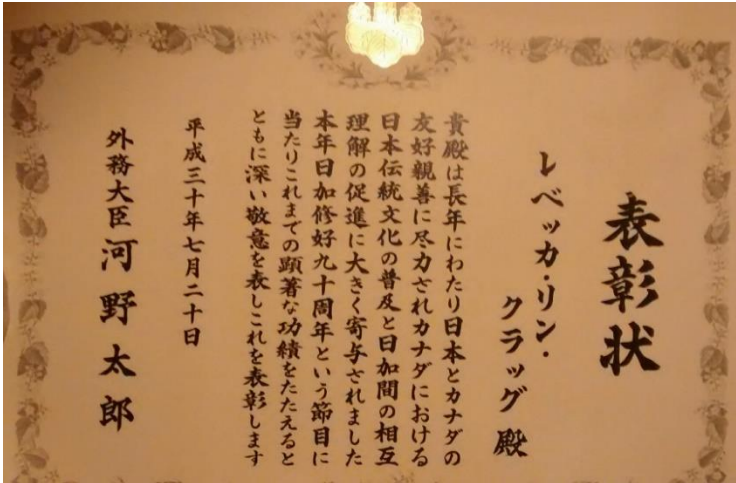 表彰状
レベッカ・リン・
クラッグ殿
貴殿は長年にわたり日本とカナダの
友好親善に尽力されカナダにおける
日本伝統文化の普及と日加間の相互
理解の促進に大きく寄与されました
本年日加修好九十周年という節目に
当たりこれまでの顕著な功績をたたえると
ともに深い敬意を表しこれを表彰します
平成三十年七月二十日
外務大臣 河野太郎